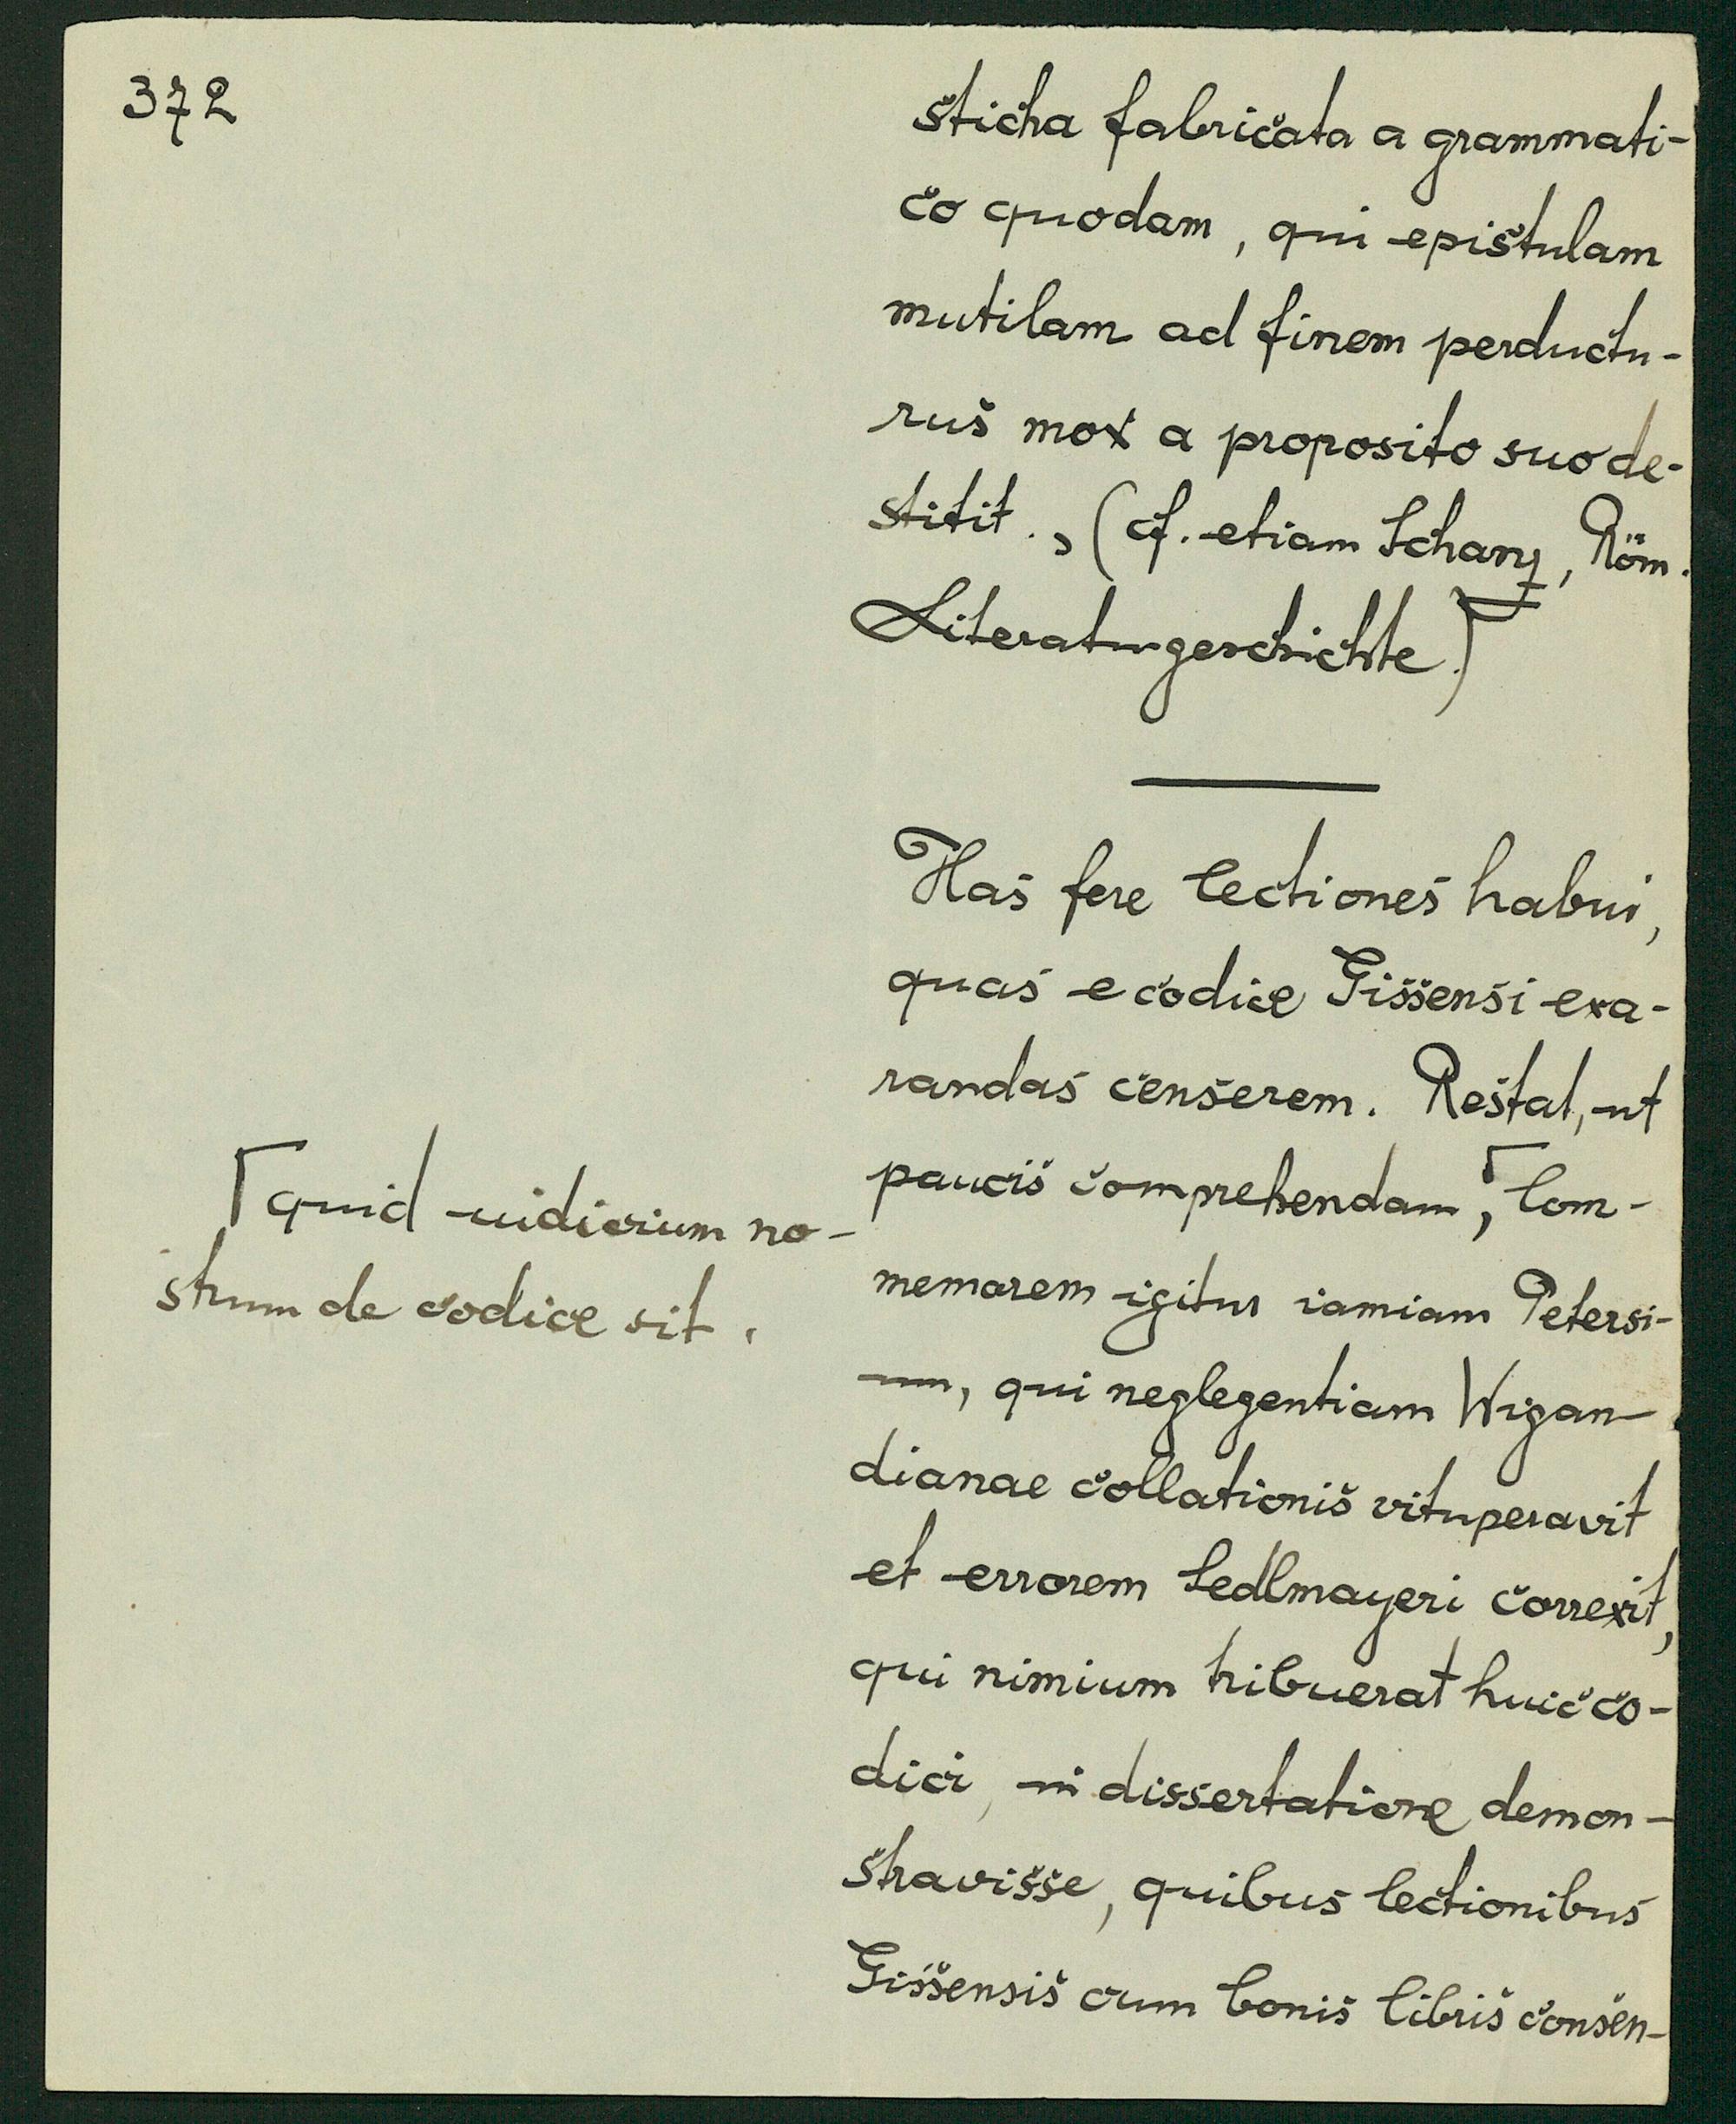 372
sticha fabricata a grammati-
co quodam, qui epistulam
mutilam ad finem perductu-
rus mox a proposito suo de-
stitit. „ (cf. etiam Schanz, Röm.
Literaturgeschichte.)
Has fere lectiones habui,
quas e codice Gissensi exa-
randas censerem. Restat, ut
paucis comprehendam,⎡ Com-
memorem igitur iamiam Petersi-
um, qui neglegentiam Wigan-
dianae collationis vituperavit
et errorem Sedlmayeri correxit,
qui nimium tribuerat huic co-
dici, in dissertatione demon-
stravisse, quibus lectionibus
Gissensis cum bonis libris consen-
⎡ quid iudicium no-
strum de codice sit.